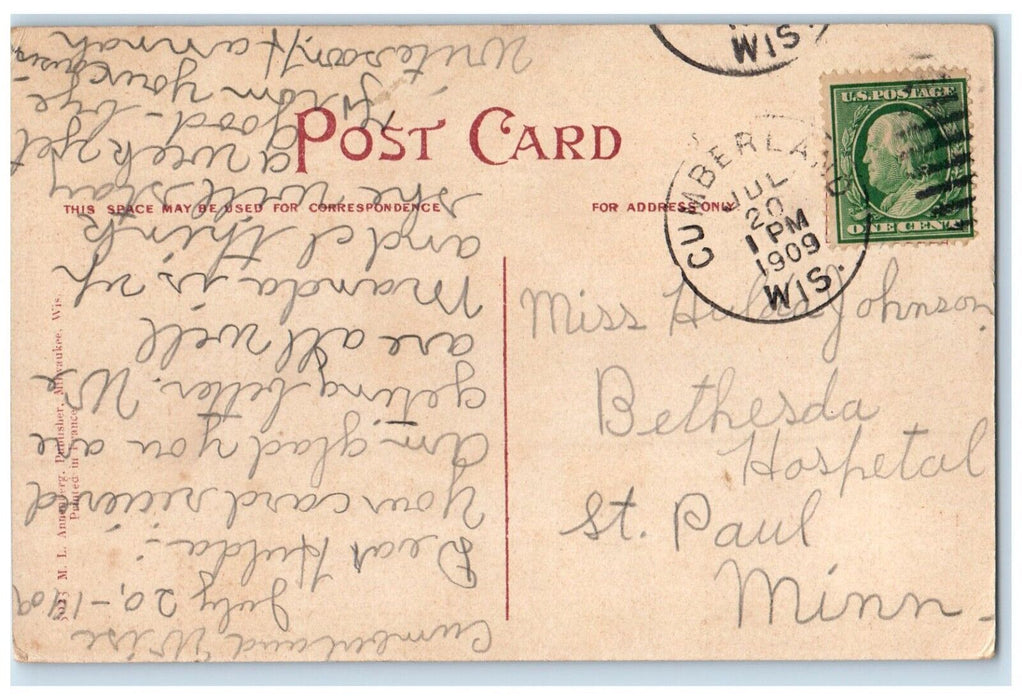 WIS.
U.S. POSTAGE
ONE CENT
CUMBERLAND
JUL
20
1 PM
1909
WIS.
POST CARD
THIS SPACE MAY BE USED FOR CORRESPONDENCE
FOR ADDRESS ONLY.
Miss Hulda Johnson
Bethesda
Hospetal
St. Paul
Minn
M. L. Annenberg, Publisher, Milwaukee, Wis.
Printed in France
Cumberland Wisc
July 20, - 1909
Dear Hulda:
Your card recieved
Am glad you are
geting better. We
are all well
Manda is up
and I think
she will stay
a week yet
good-bye
from your cousin
Write soon Hannah